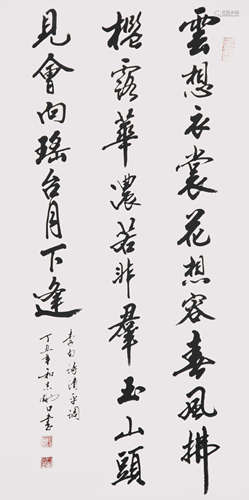 雲想衣裳花想容春風拂
檻露華濃若非羣玉山頭
見會向瑶台月下逢
李白詩清平調
丁丑年
書